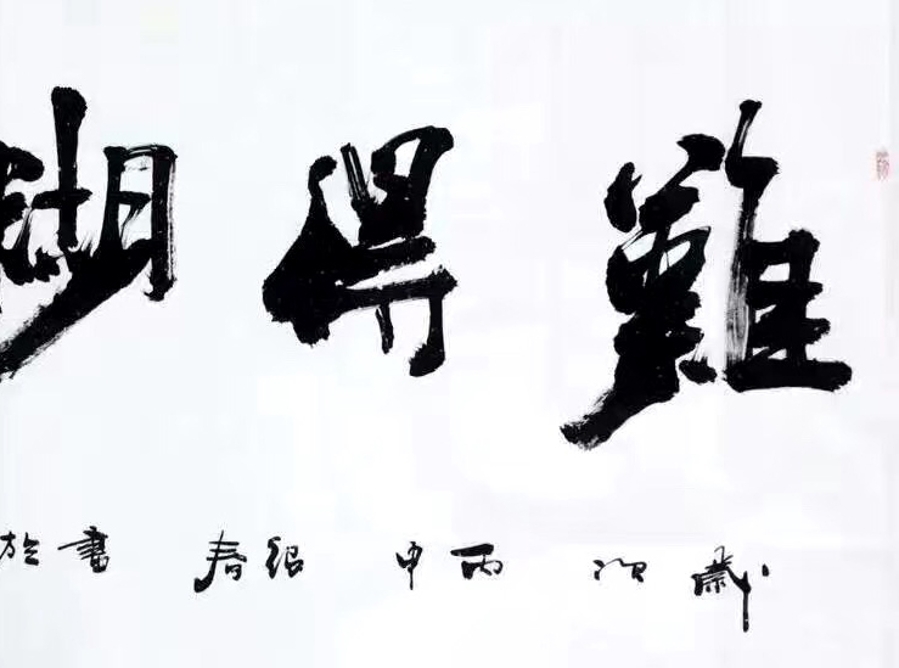 難得糊
歲次丙申 春書於